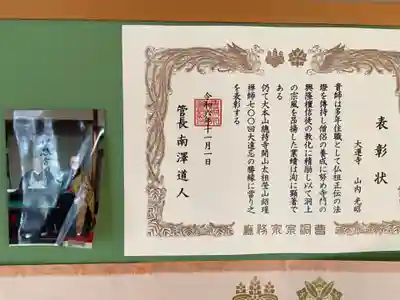 表彰状
大運寺 山内 光昭
貴師は多年住職として仏祖正伝の法
燈を伝持し僧侶の養成に努め寺門の
興隆檀信徒の教化に精励し以て洞上
の宗風を昂揚した業績は洵に顕著で
ある
仍て大本山總持寺開山太祖瑩山紹瑾
禅師七〇〇回大遠忌の勝縁に当り之
を表彰する
令和六年十一月一日
管長 南澤道人
曹洞宗宗務廳